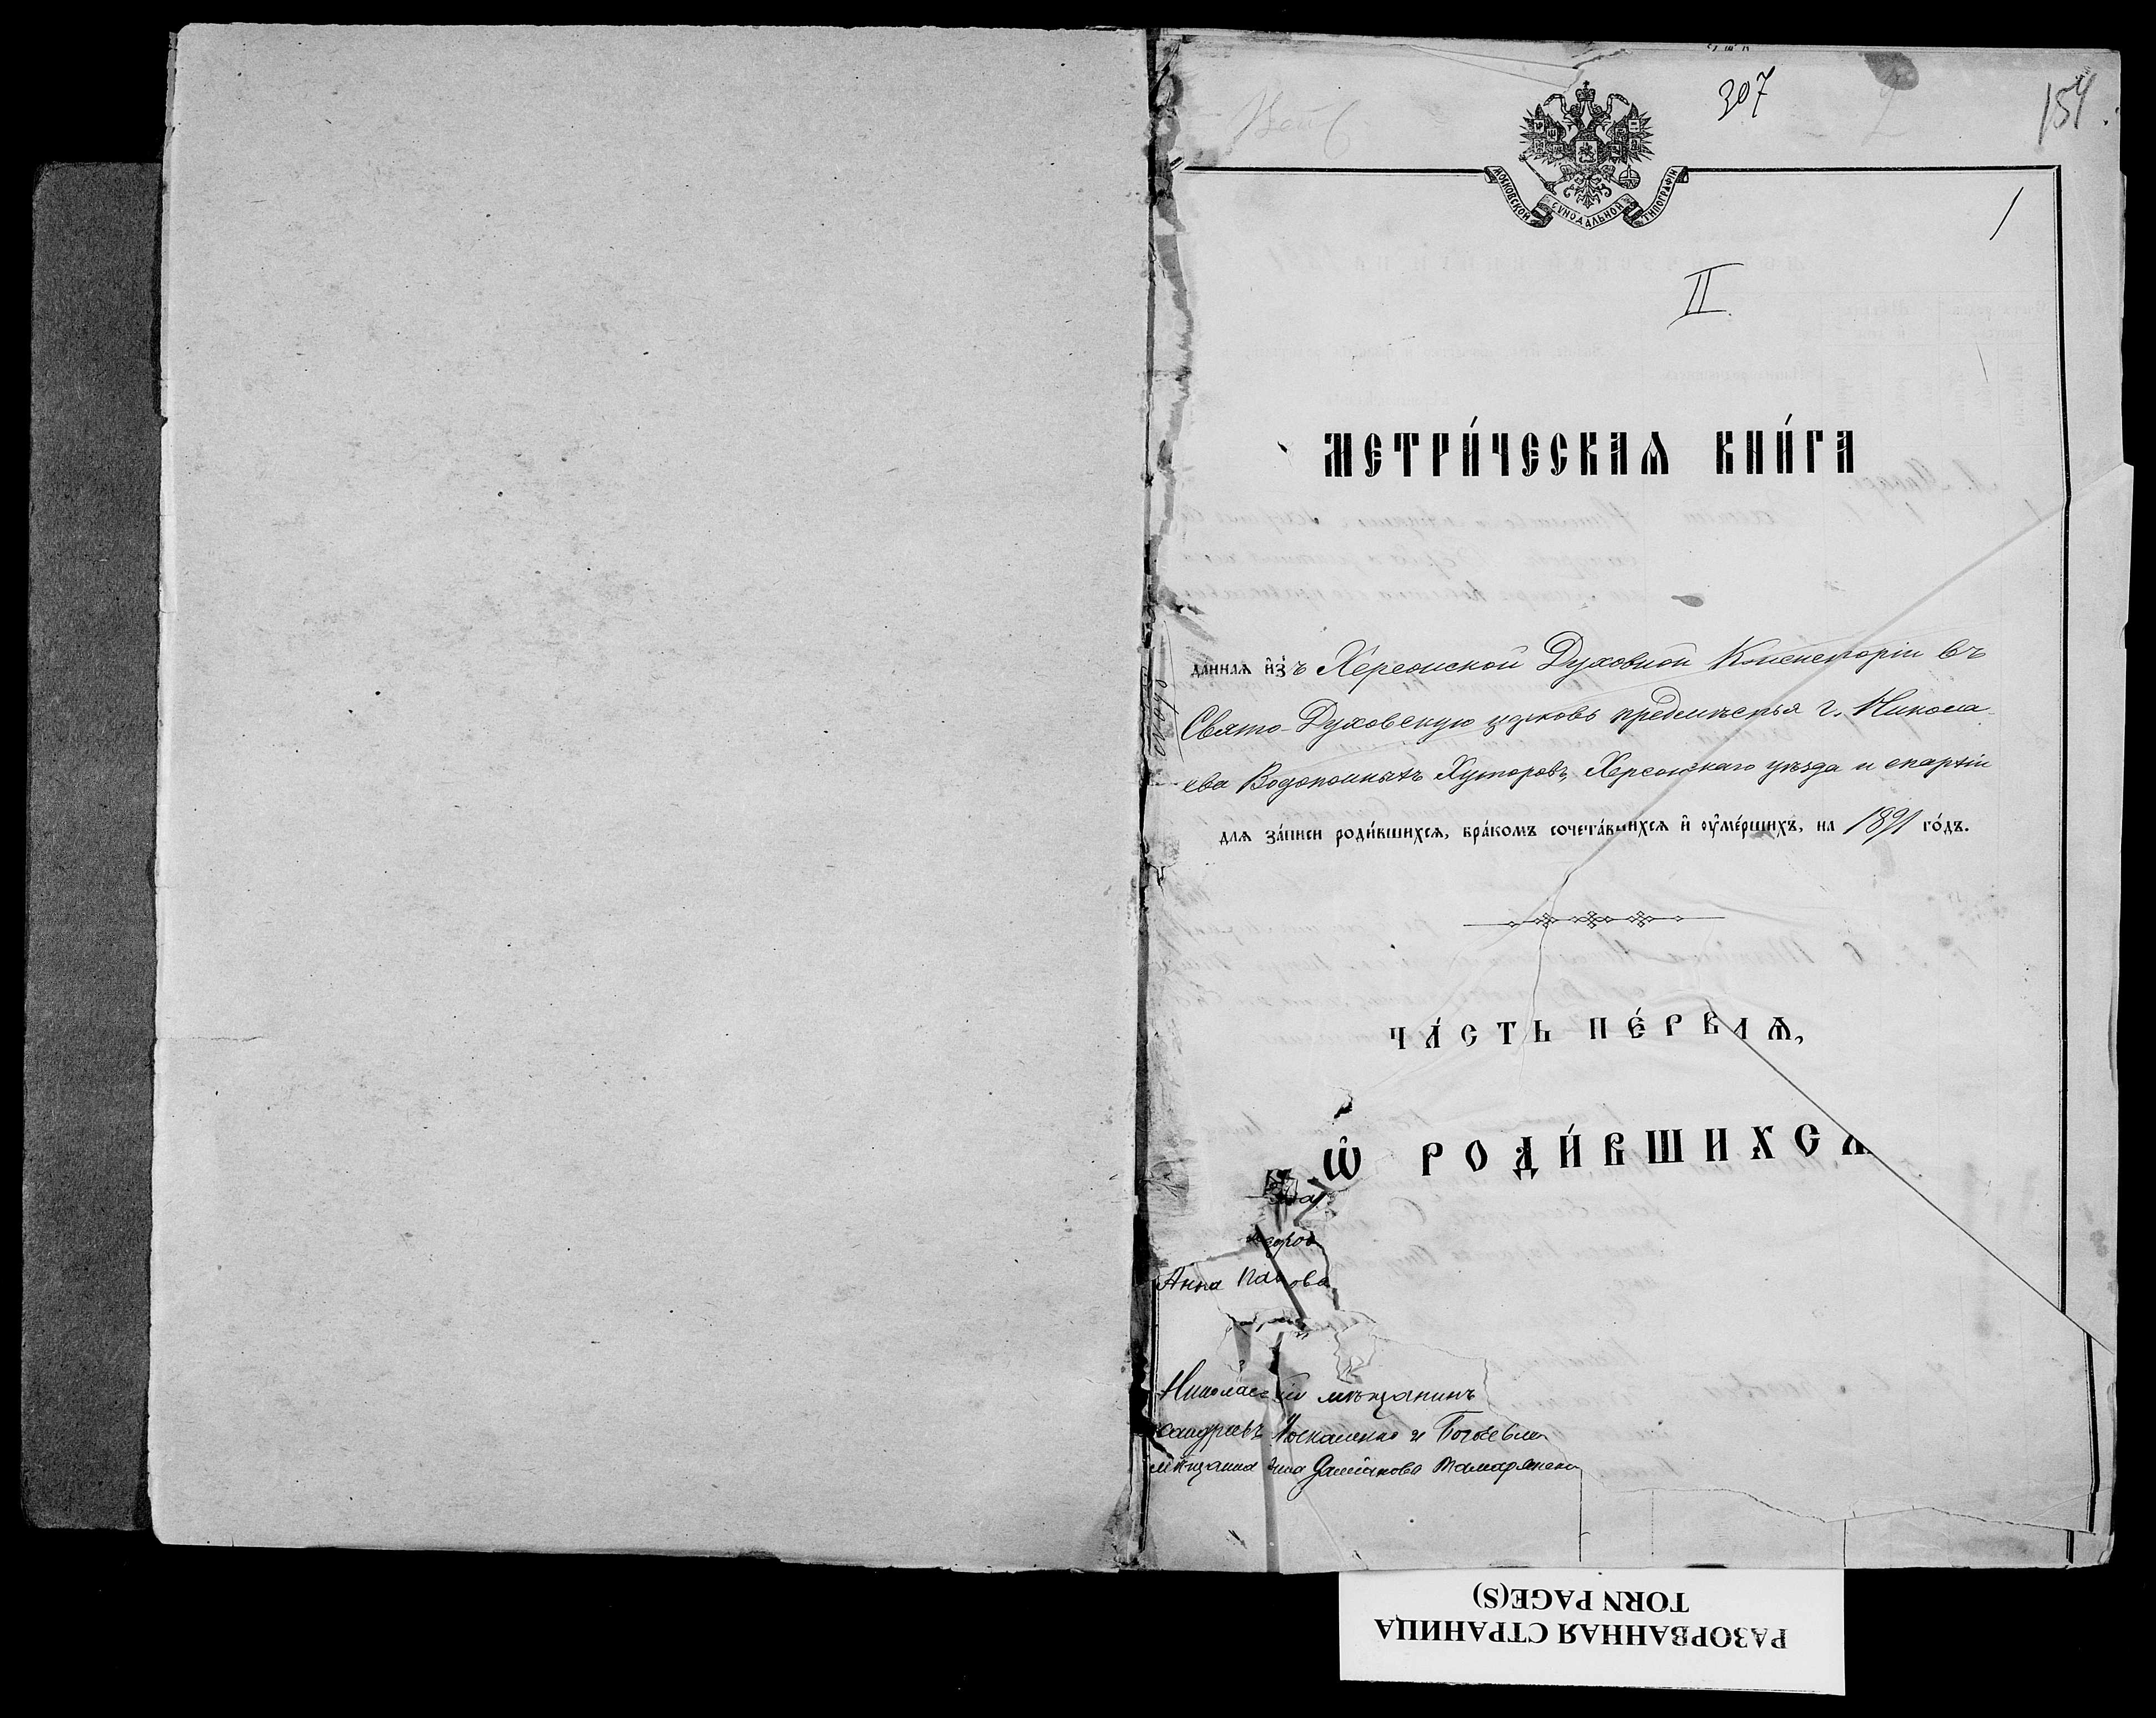 307
154.
МОСКОВСКОЙ СѴНОДАЛЬНОЙ ТИПОГРАФІИ
1
II
МЕТРИ́ЧЕСКАѦ КНИ́ГА
даннаѧ и҆з̾ъ Херсонской Духовной Консисторіи въ
Свято-Духовскую церковь предмѣстья г. Никола
ева Водопойныхъ Хуторовъ, Херсонскаго уѣзда и епархіи
длѧ за́писи роди́вшихсѧ, бра́комъ сочета́вшихсѧ и҆ ᲂу҆ме́ршихъ, на 1891 го́дъ.
ЧА́СТЬ ПЕ́РВАѦ,
Ѡ҆ РОДИ́ВШИХСѦ
Анна
Николаевскій мѣщанинъ
Москаленко и
мѣщанка
РАЗОРВАННАЯ СТРАНИЦА
TORN PAGE(S)